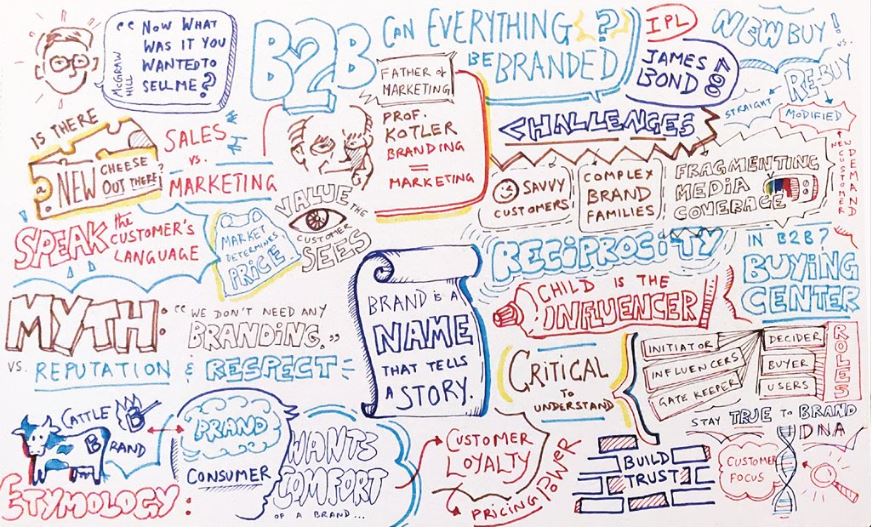 "NOW WHAT
WAS IT YOU
WANTED TO
SELL ME?
McGRAW
HILL
B2B
CAN EVERYTHING
BE BRANDED?
IPL
JAMES
BOND
007
NEW BUY!
VS.
REBUY
STRAIGHT
MODIFIED
NEW
CUSTOMER
DEMAND
IS THERE
NEW CHEESE
OUT THERE?
SALES
VS.
MARKETING
FATHER of
MARKETING
PROF.
KOTLER
BRANDING
=
MARKETING
CHALLENGES
SAVVY
CUSTOMERS
COMPLEX
BRAND
FAMILIES
FRAGMENTING
MEDIA
COVERAGE
SPEAK the
CUSTOMER'S
LANGUAGE
MARKET
DETERMINES
PRICE.
VALUE THE
CUSTOMER
SEES
RECIPROCITY
IN B2B?
BUYING
CENTER
CHILD IS THE
INFLUENCER
MYTH:
"WE DON'T NEED ANY
BRANDING."
VS. REPUTATION & RESPECT
BRAND IS A
NAME
THAT TELLS
A STORY.
CRITICAL
TO
UNDERSTAND
INITIATOR
INFLUENCERS
GATE KEEPER
DECIDER
BUYER
USERS
ROLES
STAY TRUE to BRAND
DNA
CATTLE
B RAND
ETYMOLOGY:
PRAND
CONSUMER
WANTS
COMFORT
OF A BRAND...
CUSTOMER
LOYALTY
PRICING POWER
BUILD
TRUST
CUSTOMER
FOCUS